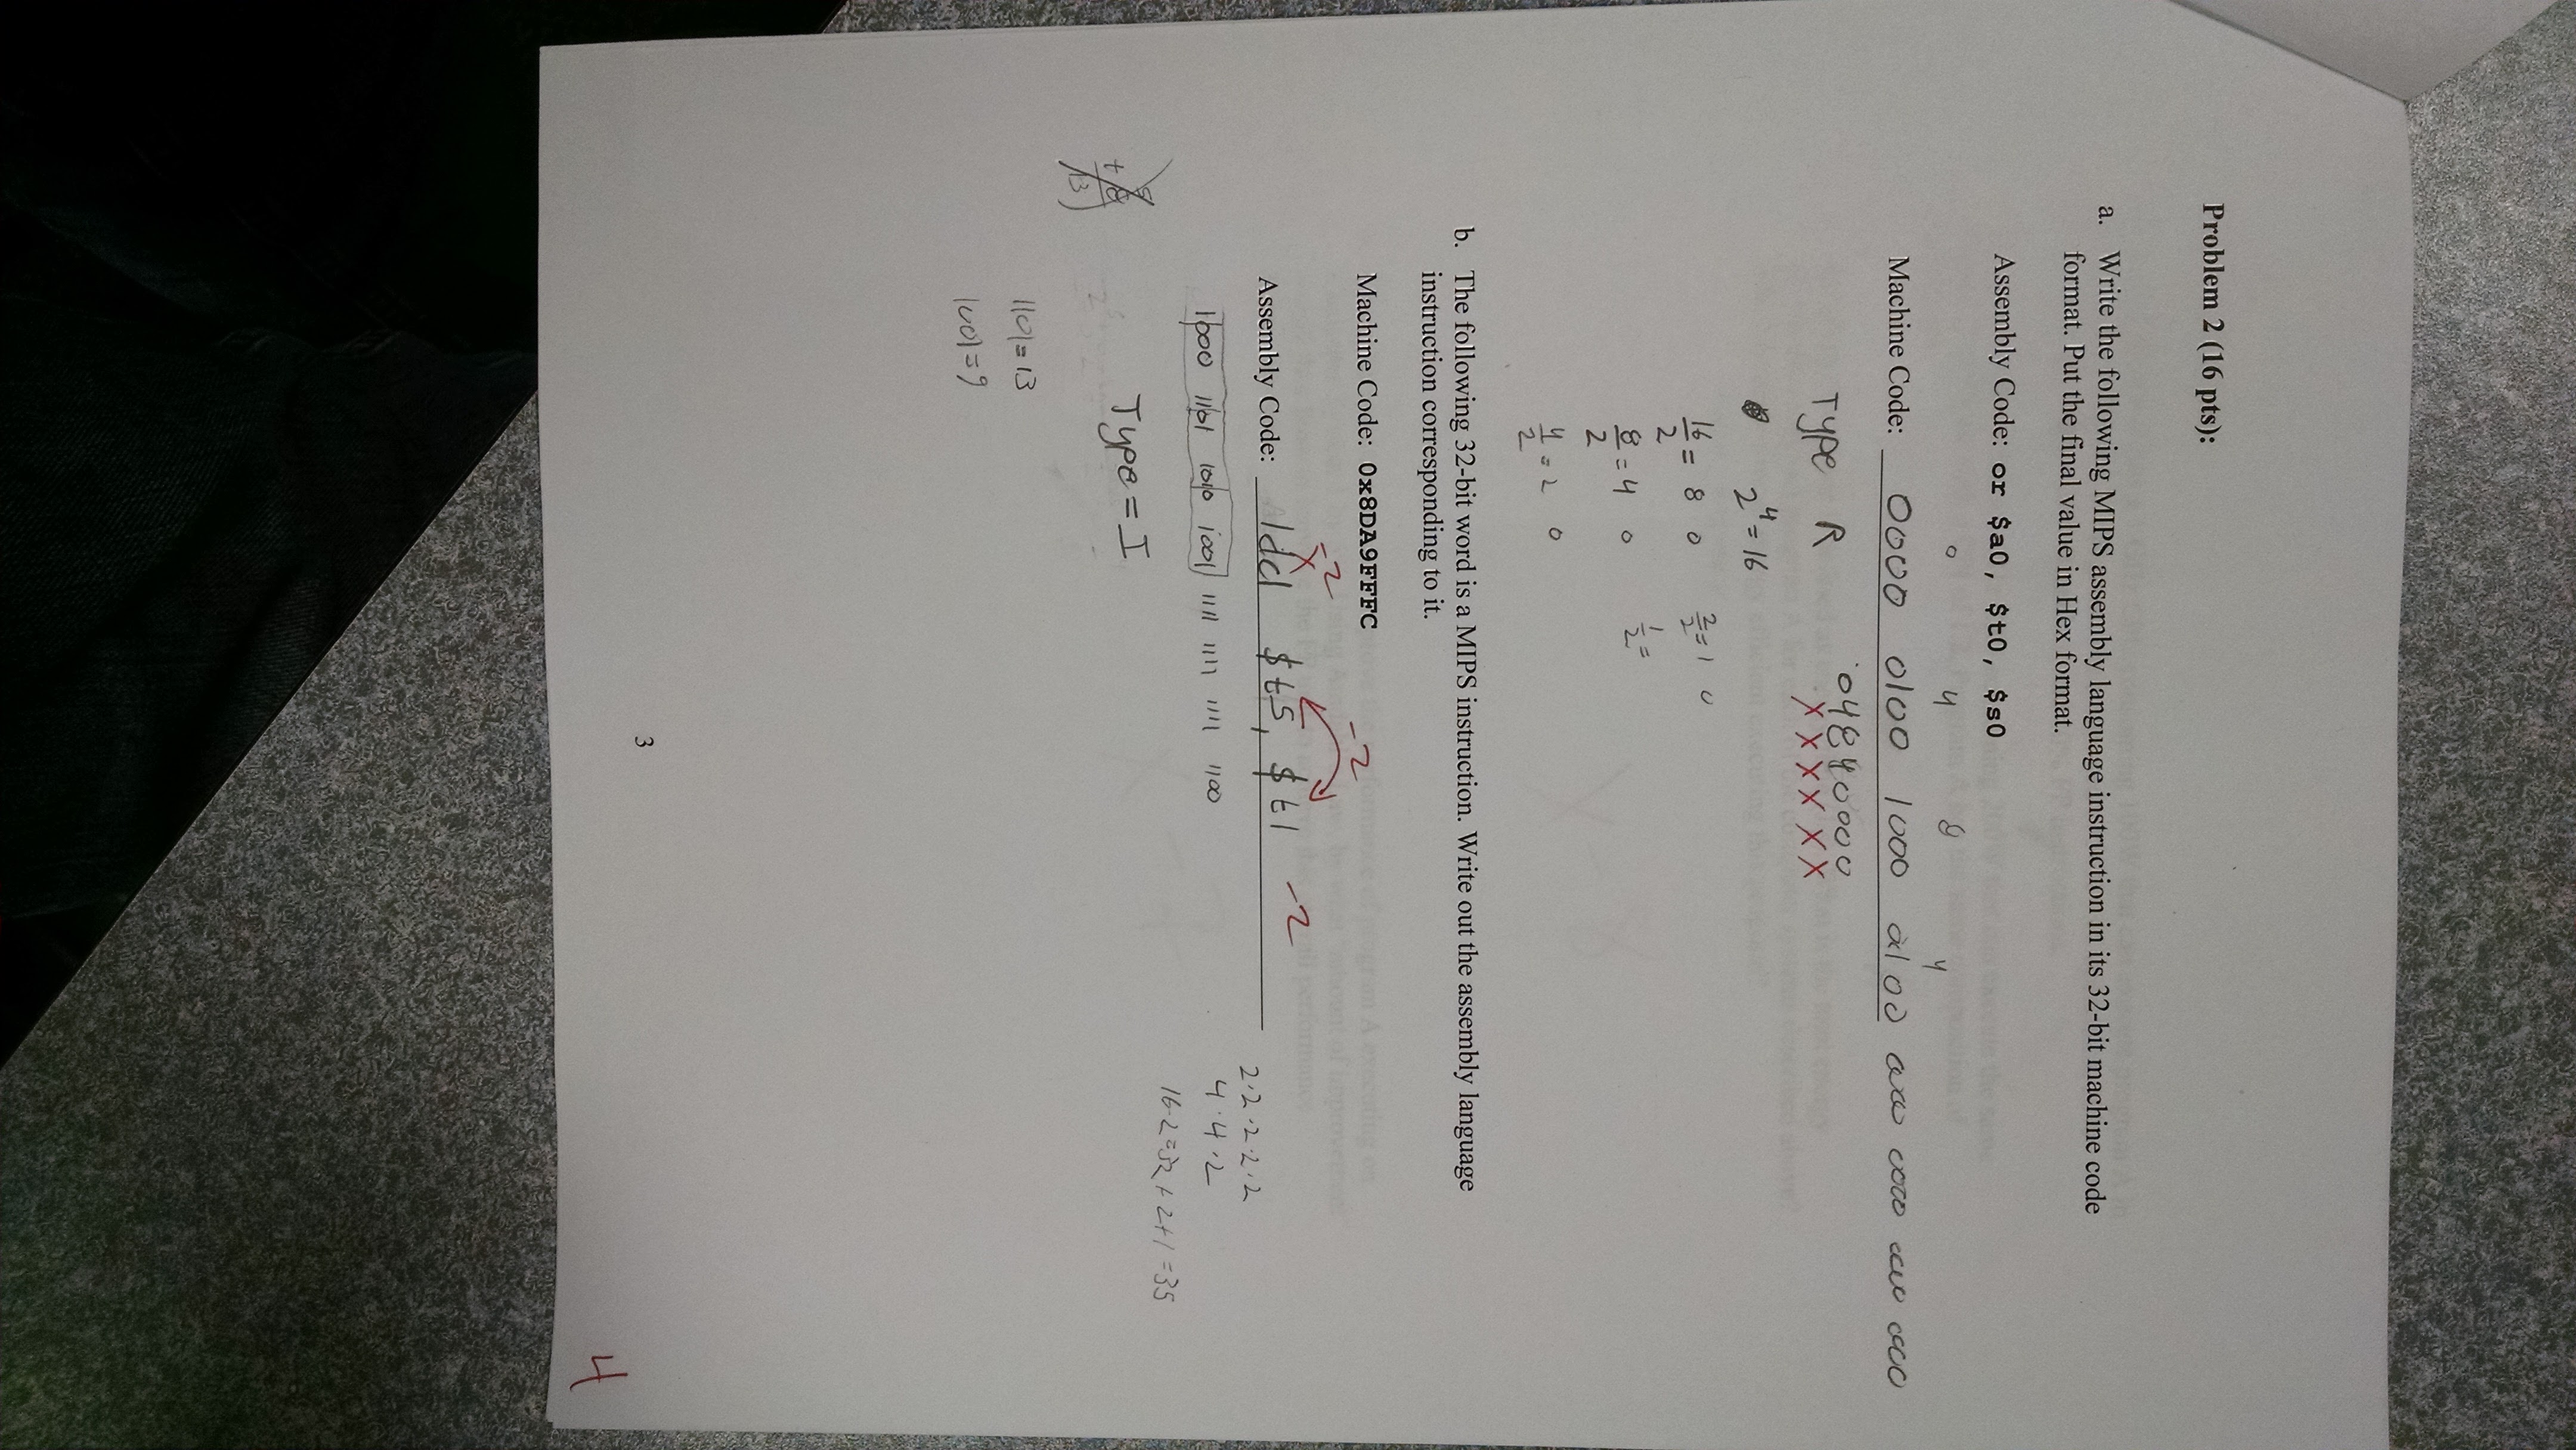 Problem 2 (16 pts):
a. Write the following MIPS assembly language instruction in its 32-bit machine code
format. Put the final value in Hex format.
Assembly Code: or $a0, $t0, $s0
0 4 8 4
Machine Code: 0000 0100 1000 0100 0000 0000 0000 0000
04840000
X X X X X X
Type R
2^4 = 16
16/2 = 8 0 2/2 = 1 0
8/2 = 4 0 1/2 =
4/2 = 2 0
b. The following 32-bit word is a MIPS instruction. Write out the assembly language
instruction corresponding to it.
Machine Code: 0x8DA9FFFC
-2 -2
X
Assembly Code: ldd $t5, $t1 -2
2·2·2·2·2
1000 1101 1010 1001 1111 1111 1111 1100 4·4·2
16·2=32+2+1=35
Type = I
1101 = 13
1001 = 9
3
4